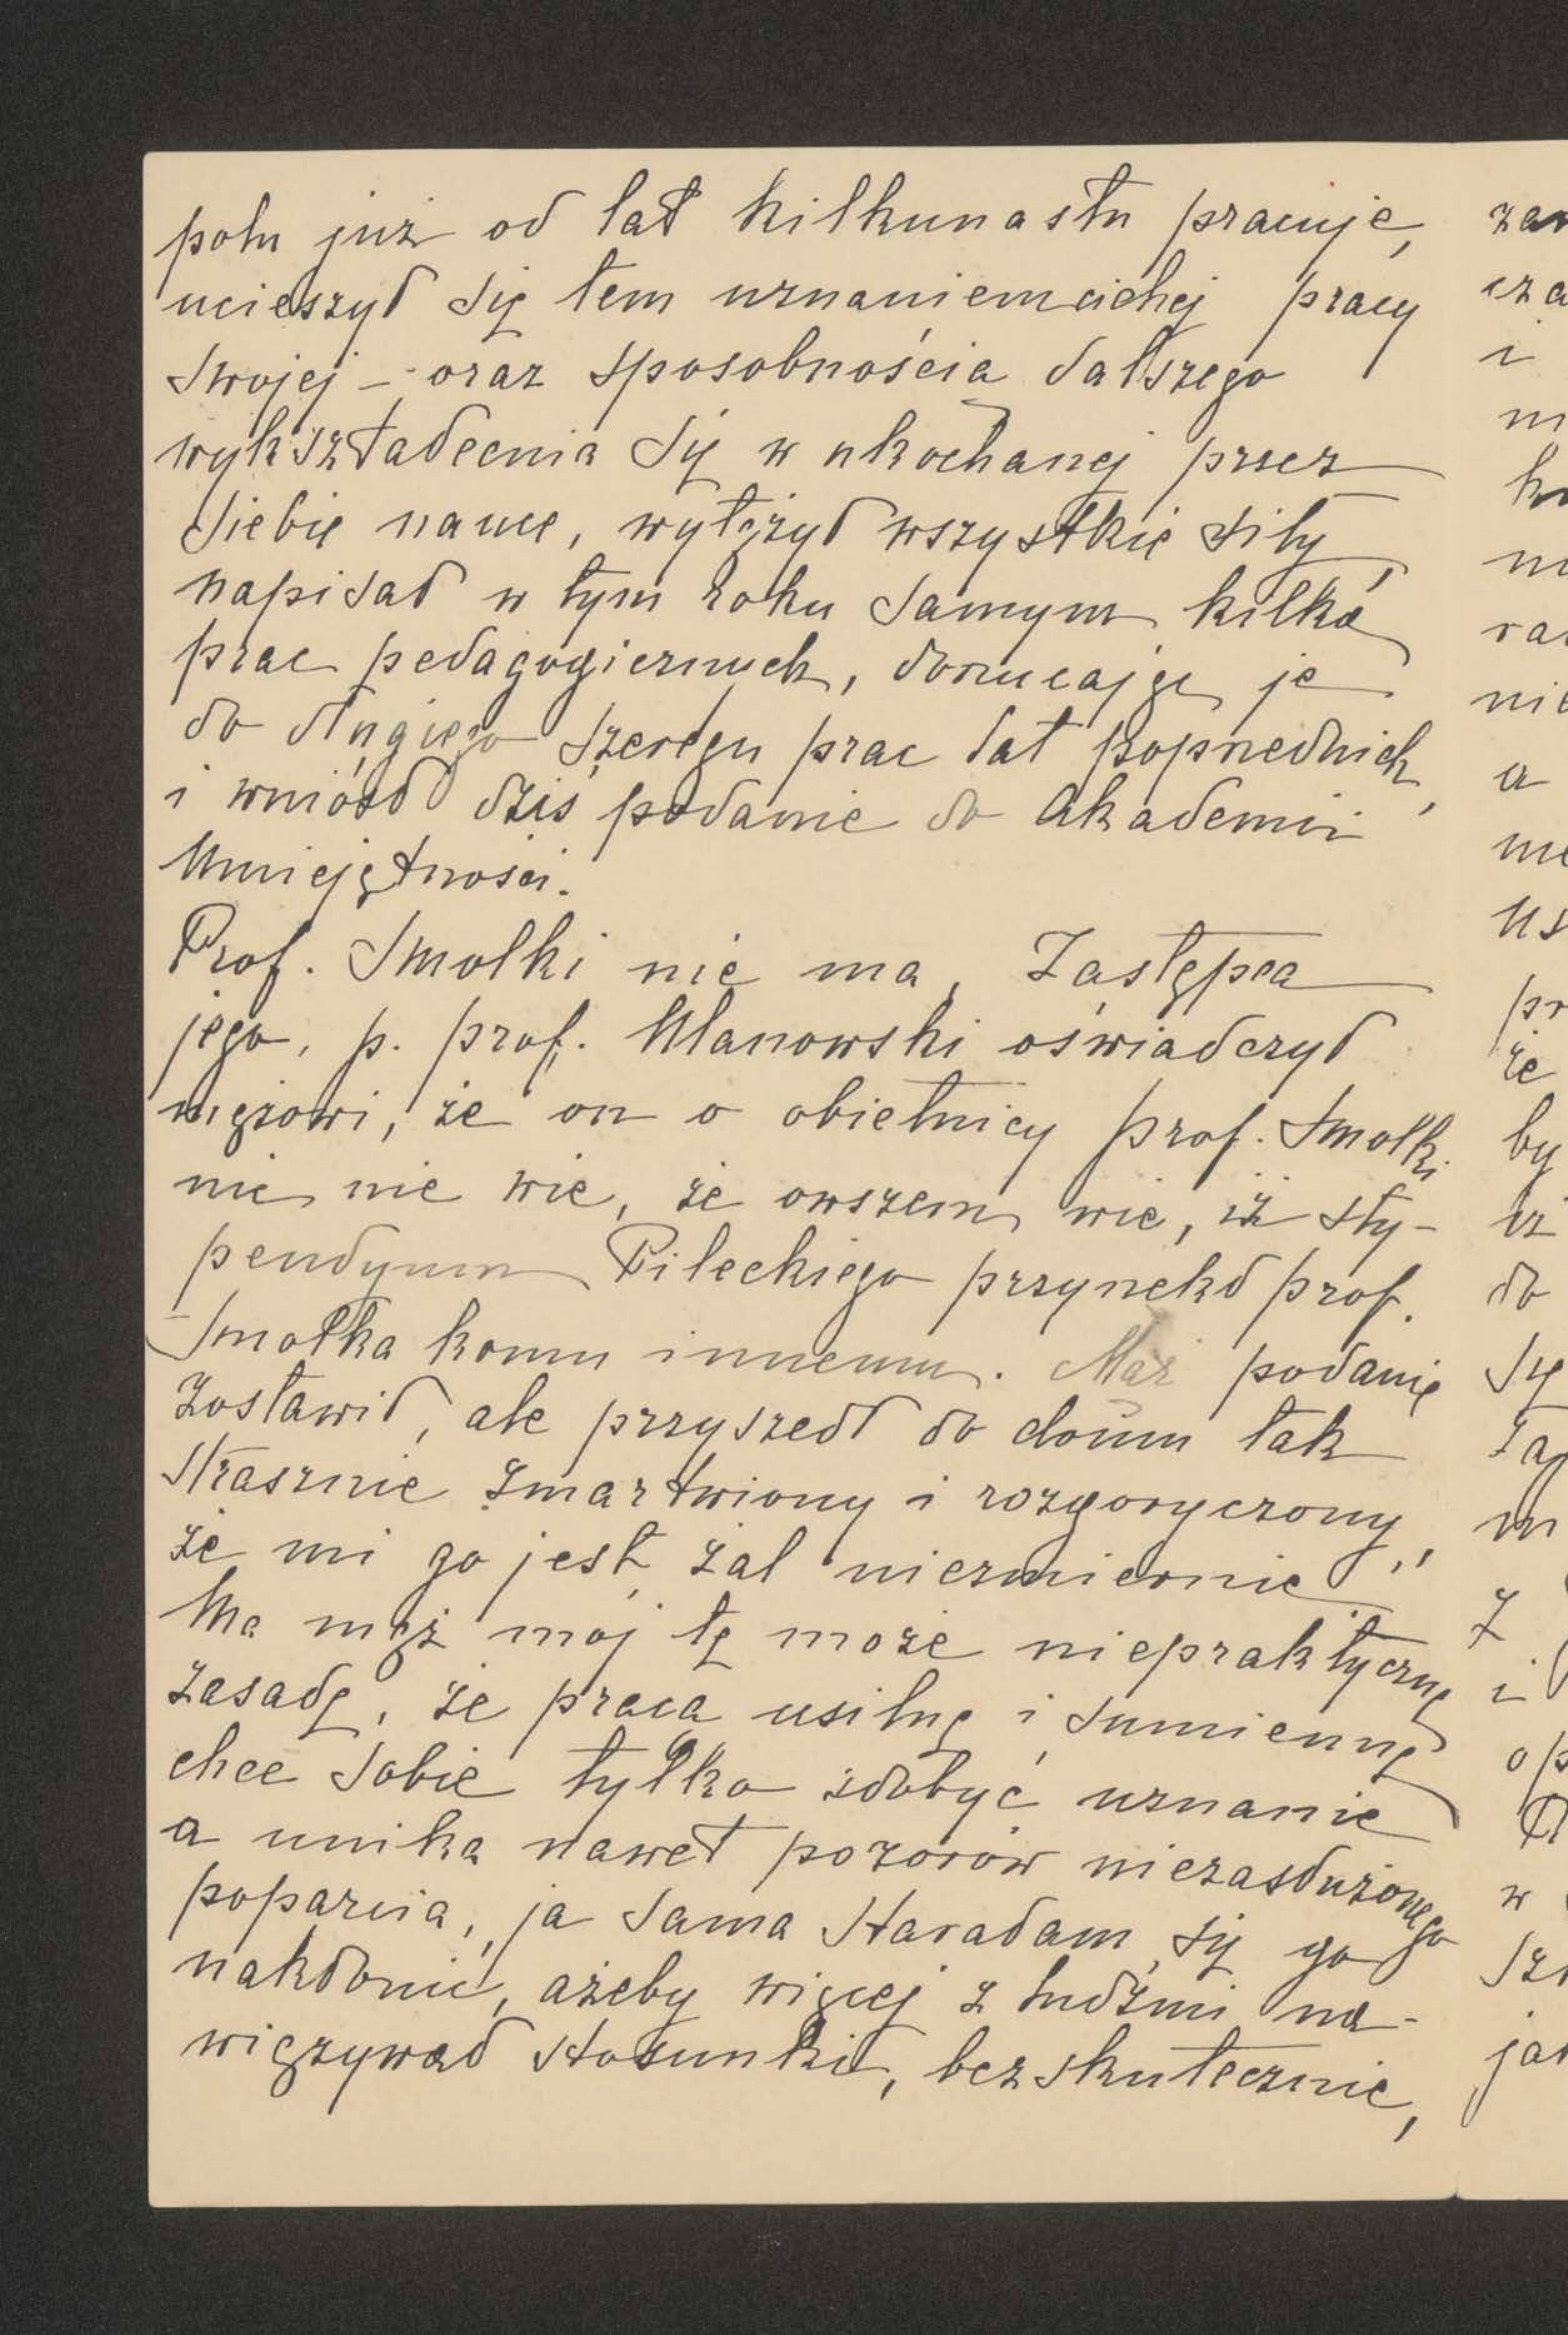 polu już od lat kilkunastu pracuje,
ucieszył się tem uznaniem cichej pracy
swojej – oraz sposobnościa dalszego
wykształcenia się w ukochanej przez
siebie nauce, wytężył wszystkie siły
napisał w tym roku samym kilka
prac pedagogicznych, dorzucając je
do długiego szeregu prac lat poprzednich,
i wniósł dziś podanie do Akademii
Umiejętności.
Prof. Smolki nie ma, Zastępca
jego, p. prof. Ulanowski oświadczył
mężowi, że on o obietnicy prof. Smolki
nic nie wie, że owszem wie, iż sty-
pendyum Pileckiego przyrzekł prof.
Smolka komu innemu. Mąż podanie
zostawił, ale przyszedł do domu tak
strasznie zmartwiony i rozgoryczony,
że mi go jest żal niezmiernie.
Ma mąż mój tę może niepraktyczną
zasadę, że pracą usilną i sumienną
chce sobie tylko zdobyć uznanie
a unika nawet pozorów niezasłużonego
poparcia, ja sama starałam się go
nakłonić, ażeby więcej z ludźmi na-
więzywał stosunki, bezskutecznie,